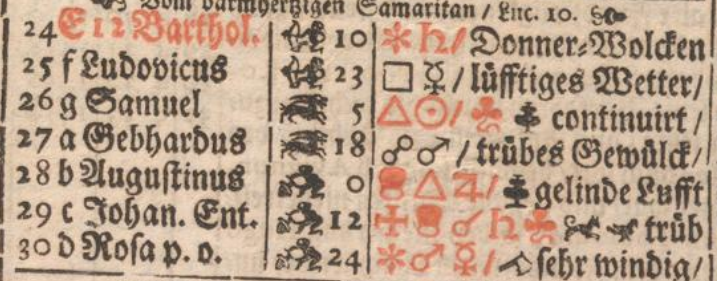 Vom barmhertzigen Samaritan / Luc. 10.
24 E 12 Barthol. 10 ✶ ♄ / Donner-Wolcken
25 f Ludovicus 23 □ ☿ / lüfftiges Wetter /
26 g Samuel 5 △ ☉ / continuirt /
27 a Gebhardus 18 ☍ ♂ / trübes Gewülck /
28 b Augustinus 0 △ ♃ / gelinde Lufft
29 c Johan. Ent. 12 ☌ ♄ trüb
30 d Rosa p. o. 24 ✶ ♂ ☿ / sehr windig /